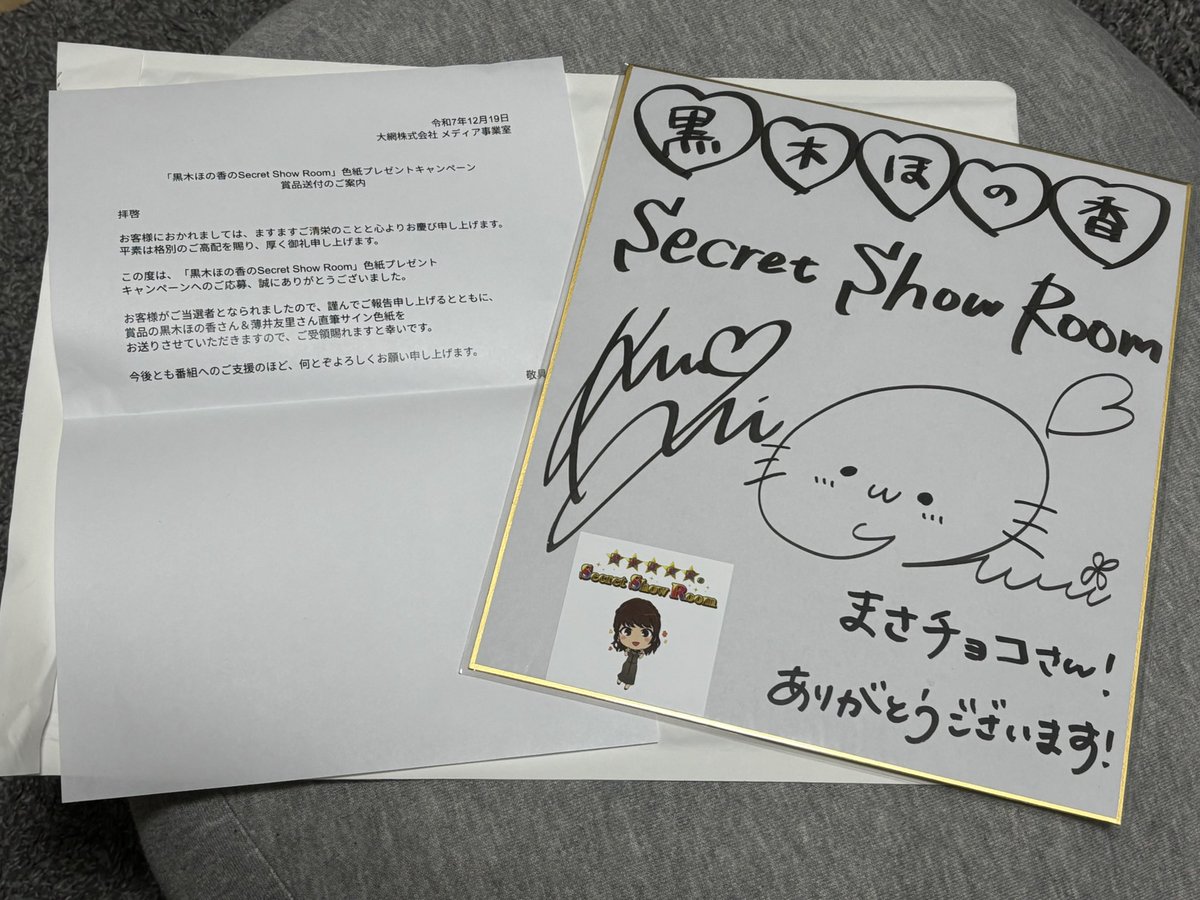 令和7年12月19日
大網株式会社 メディア事業室
「黒木ほの香のSecret Show Room」色紙プレゼントキャンペーン
賞品送付のご案内
拝啓
お客様におかれましては、ますますご清栄のことと心よりお慶び申し上げます。
平素は格別のご高配を賜り、厚く御礼申し上げます。
この度は、「黒木ほの香のSecret Show Room」色紙プレゼント
キャンペーンへのご応募、誠にありがとうございました。
お客様がご当選者となられましたので、謹んでご報告申し上げるとともに、
賞品の黒木ほの香さん＆薄井友里さん直筆サイン色紙を
お送りさせていただきますので、ご受領賜れますと幸いです。
今後とも番組へのご支援のほど、何とぞよろしくお願い申し上げます。
敬具
黒木ほの香
Secret Show Room
Secret Show Room
まさチョコさん!
ありがとうございます!